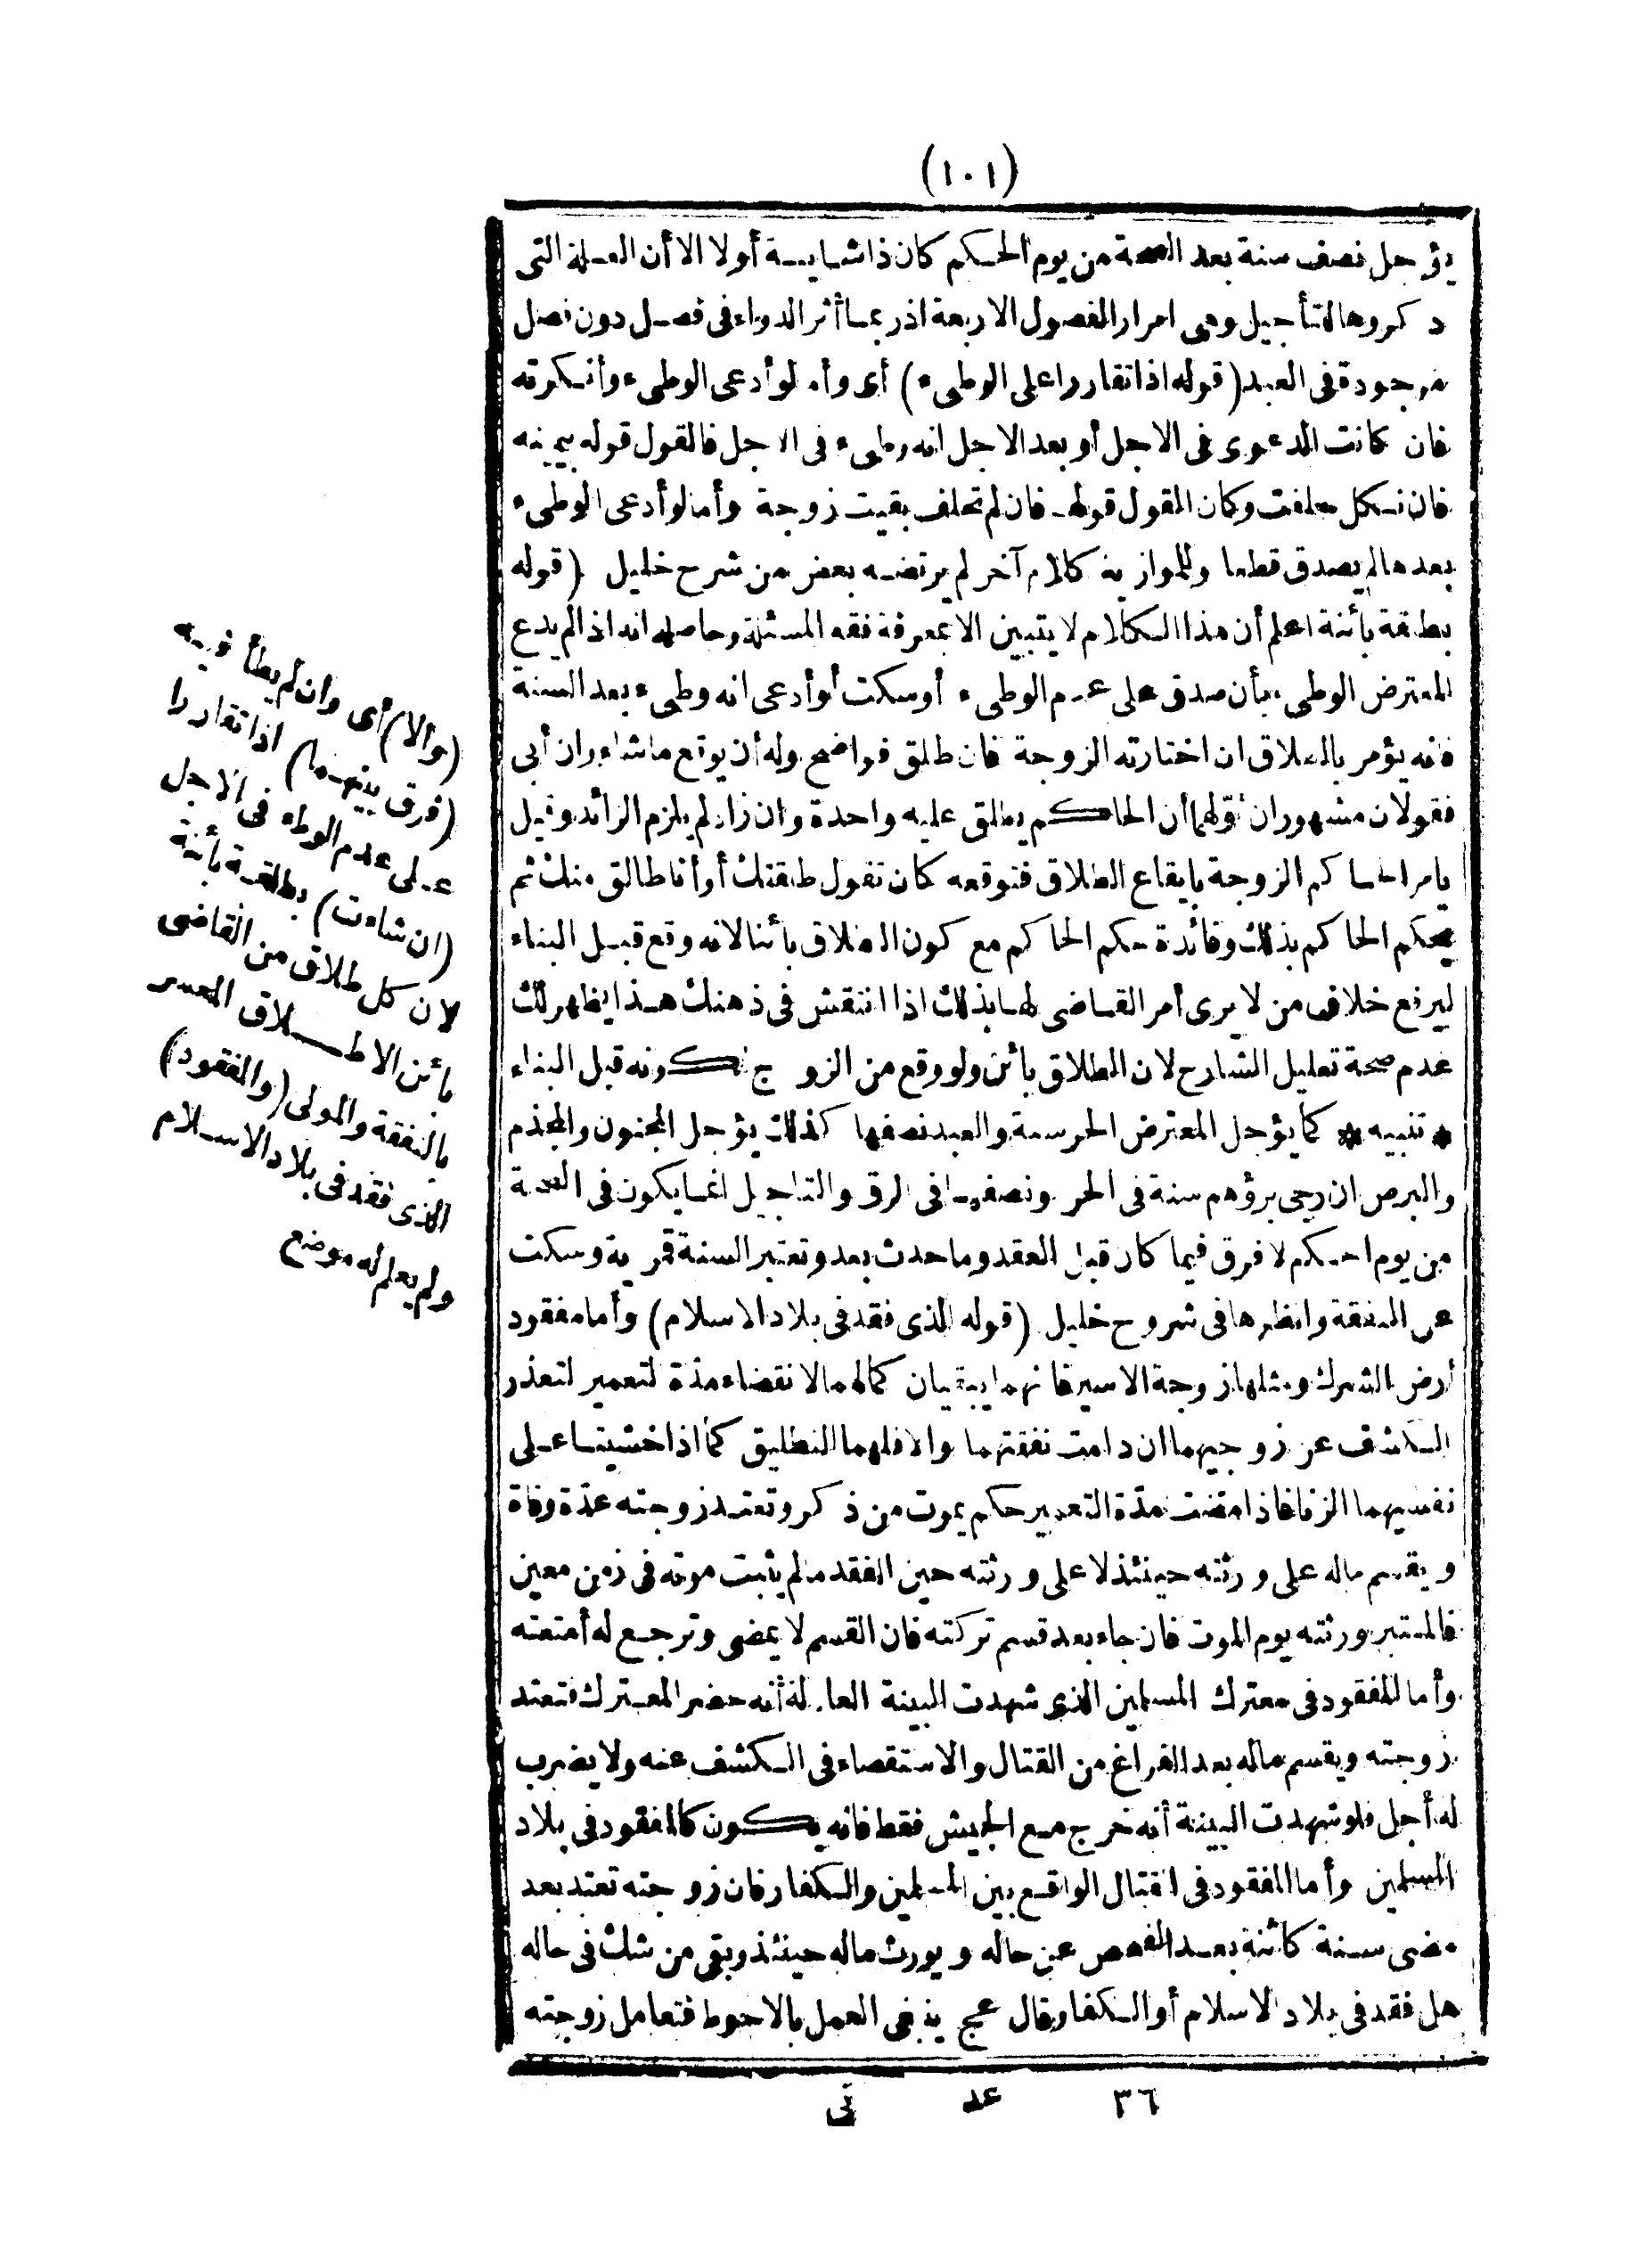 (١٠١)
يؤجل نصف سنة بعد الصحة من يوم الحكم كان ذا شابيبة أولا الا أن العلة التى
ذكروها للتأجيل وهى امرار الفصول الاربعة اذ ربما أثر الدواء فى فصل دون فصل
موجودة فى العبد (قوله اذا تقاررا على الوطىء) أى وأما لو أدعى الوطىء وأنكرته
فان كانت الدعوى فى الاجل أو بعد الاجل انه وطىء فى الاجل فالقول قوله بيمينه
فان نكل حلفت وكان القول قولها فان لم تحلف بقيت زوجة وأما لو أدعى الوطىء
بعدها لم يصدق قطعا وللموازية كلام آخر لم يرتضه بعض من شرح خليل (قوله
بطلقة بائنة اعلم أن هذا الكلام لا يتبين الا بمعرفة فقه المسئلة وحاصله انه اذا لم يدع
المعترض الوطىء بأن صدق على عدم الوطىء أو سكت أو أدعى انه وطىء بعد السنة
فانه يؤمر بالطلاق ان اختارته الزوجة فان طلق فواضح وله أن يوقع ما شاء وان أبى
فقولان مشهوران أولهما أن الحاكم يطلق عليه واحدة وان زاد لم يلزم الزائد وقيل
يامر الحاكم الزوجة بايقاع الطلاق فتوقعه كان تقول طلقتك أو أنا طالق منك ثم
يحكم الحاكم بذلك وفائدة حكم الحاكم مع كون الطلاق بائنا لانه وقع قبل البناء
ليرفع خلاف من لا يرى أمر القاضى لها بذلك اذا انتقش فى ذهنك هذا يظهر لك
عدم صحة تعليل الشارح لان الطلاق بائن ولو وقع من الزوج لكونه قبل البناء
* تنبيه * كما يؤجل المعترض الحر سنة والعبد نصفها كذلك يؤجل المجنون والمجذم
والبرص ان رجى برؤهم سنة فى الحر ونصفها فى الرق والتاجيل انما يكون فى الصحة
من يوم الحكم لا فرق فيما كان قبل العقد وما حدث بعد وتعتبر السنة قمرية وسكت
عن النفقة وانظرها فى شروح خليل (قوله الذى فقد فى بلاد الاسلام) وأما مفقود
أرض الشرك ومثلها زوجة الاسير فانهما يبقيان كمالهما لانقضاء مدة التعمير لتعذر
الكشف عن زوجيهما ان دامت نفقتهما والا فلهما التطليق كما اذا خشيتا على
نفسيهما الزنا فاذا مضت مدة التعمير حكم بموت من ذكر وتعتد زوجته عدة وفاة
ويقسم ماله على ورثته حينئذ لا على ورثته حين الفقد ما لم يثبت موته فى زمن معين
فالمعتبر ورثته يوم الموت فان جاء بعد قسم تركته فان القسم لا يمضى وترجع له أمتعته
وأما المفقود فى معترك المسلمين الذى شهدت البينة العادلة أنه حضر المعترك فتعتد
زوجته ويقسم ماله بعد الفراغ من القتال والاستقصاء فى الكشف عنه ولا يضرب
له أجل فلو شهدت البينة أنه خرج مع الجيش فقط فانه يكون كالمفقود فى بلاد
المسلمين وأما المفقود فى القتال الواقع بين المسلمين والكفار فان زوجته تعتد بعد
مضى سنة كائنة بعد الفحص عن حاله ويورث ماله حينئذ وبقى من شك فى حاله
هل فقد فى بلاد الاسلام أو الكفار وقال عج ينبغى العمل بالاحوط فتعامل زوجته
(والا) أى وان لم يطأ فيه
(فرق بينهما) اذا تقاررا
على عدم الوطء فى الاجل
(ان شاءت) بطلقة بائنة
لان كل طلاق من القاضى
بائن الا طلاق المعسر
بالنفقة والمولى (والمفقود)
الذى فقد فى بلاد الاسلام
ولم يعلم له موضع
٣٦ عد نى